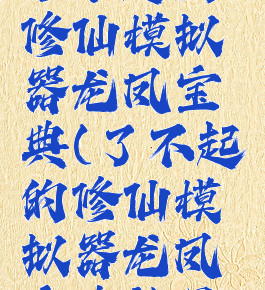 修仙模拟
器龙凤宝
典(了不起
的修仙模
拟器龙凤